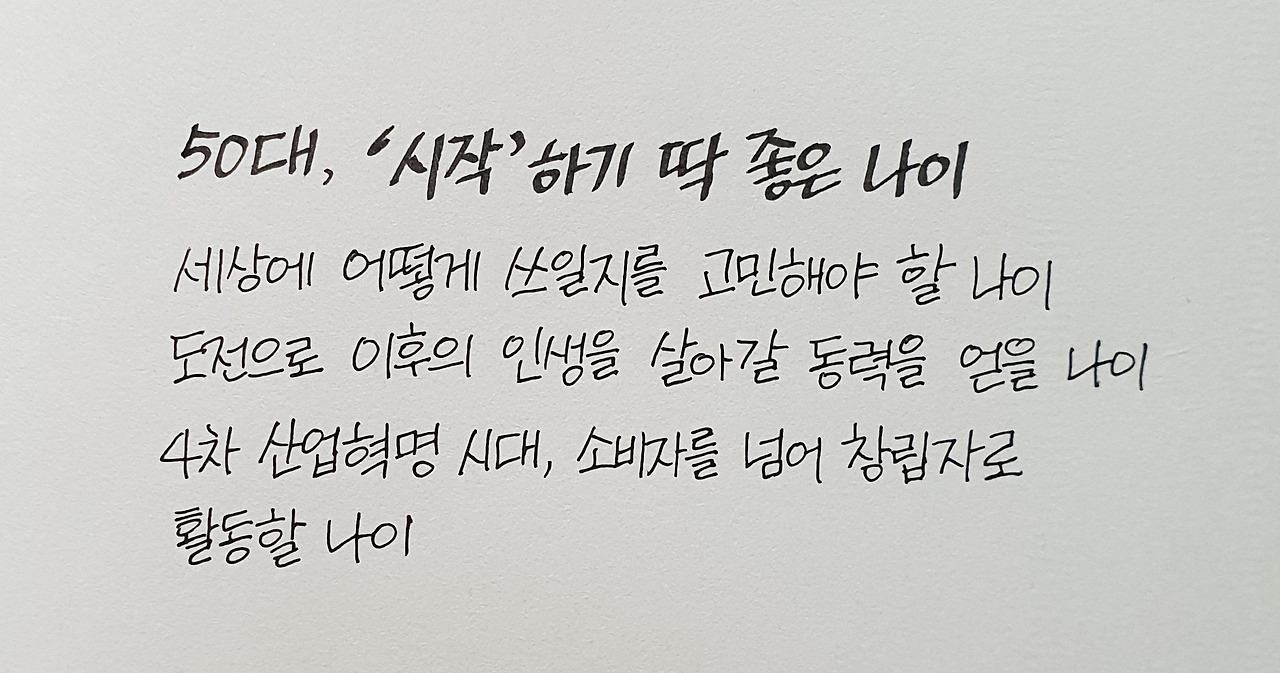 50대, ‘시작’하기 딱 좋은 나이
세상에 어떻게 쓰일지를 고민해야 할 나이
도전으로 이후의 인생을 살아갈 동력을 얻을 나이
4차 산업혁명 시대, 소비자를 넘어 창립자로
활동할 나이